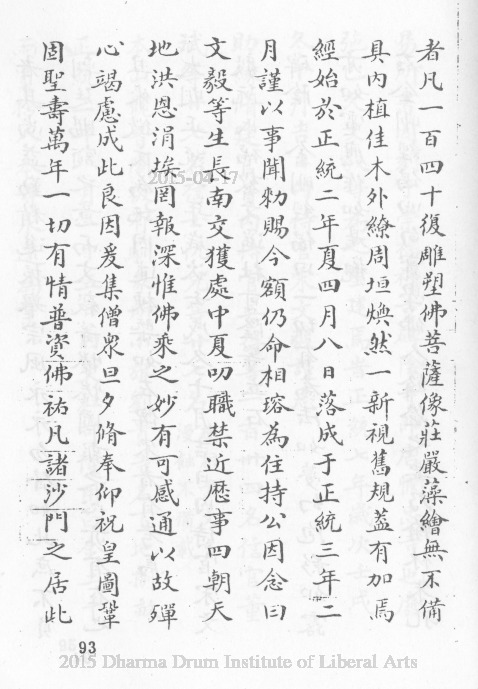 者凡一百四十復雕塑佛菩薩像莊嚴藻繪無不備
具內植佳木外繚周垣煥然一新視舊規蓋有加焉
經始於正統二年夏四月八日落成于正統三年二
月謹以事聞勑賜今額仍命相瑢為住持公因念曰
文毅等生長南交獲處中夏叨職禁近歷事四朝天
地洪恩涓埃罔報深惟佛乘之妙有可感通以故殫
心竭慮成此良因爰集僧眾旦夕脩奉仰祝皇圖鞏
固聖壽萬年一切有情普資佛祐凡諸沙門之居此
93
2015-04-17
2015 Dharma Drum Institute of Liberal Arts